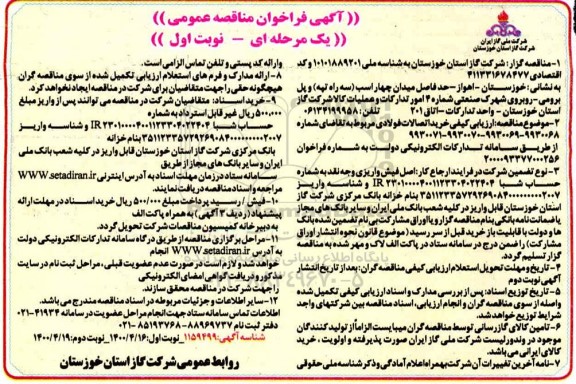 شرکت ملی گاز ایران
شرکت گاز استان خوزستان
(( آگهی فراخوان مناقصه عمومی ))
(( یک مرحله ای – نوبت اول ))
۱-مناقصه گزار: شرکت گاز استان خوزستان به شناسه ملی ۱۰۱۰۱۸۸۹۲۰۱ و کد
اقتصادی ۴۱۱۳۳۱۶۷۸۴۷۷
به نشانی : خوزستان - اهواز - حد فاصل میدان چهار اسب (سه راه تپه) و پل
برومی-روبروی شهرک صنعتی شماره ۴ امور تدارکات و عملیات کالا شرکت گاز
استان خوزستان - واحد تدارکات - اتاق ۲۰۱ تلفن : ۰۶۱۳۴۱۹۹۹۵۸
۲-موضوع مناقصه: ارزیابی کیفی خرید اتصالات فولادی مربوط به تقاضای شماره
۹۹۳۰۰۶۸-۹۹۳۰۰۶۹-۹۹۳۰۰۷۰-۹۹۳۰۰۷۱
از طریق سامانه تدارکات الکترونیکی دولت به شماره فراخوان
۲۰۰۰۰۹۳۳۷۷۰۰۰۲۵۶
۳-نوع تضمین شرکت در فرایند ارجاع کار: اصل فیش واریزی وجه نقد به شماره
حساب شبا IR ۲۳۰۱۰۰۰۰۴۰۰۱۱۲۳۳۰۴۰۲۲۴۰۴ و شناسه واریز
۳۵۱۱۲۳۳۵۷۲۹۲۶۹۰۸۴۰۰۰۰۰۰۰۲۰۰۷ بنام خزانه بانک مرکزی شرکت گاز
استان خوزستان قابل واریز در کلیه شعب بانک ملی ایران و سایر بانک های مجاز
یا ضمانت نامه بانکی بنام مناقصه گزار و یا اوراق مشارکت بی نام تضمین شده بانک
ها و دولت با قابلیت باز خرید قبل از سر رسید (موضوع قانون نحوه انتشار اوراق
مشارکت) را ضمن درج در سامانه ستاد در پاکت الف لاک و مهر شده به مناقصه
گزار تسلیم گردد.
۴-تاریخ و مهلت تحویل استعلام ارزیابی کیفی مناقصه گران: بعد از تاریخ انتشار
آگهی نوبت دوم
۵-تاریخ توزیع اسناد: پس از بررسی مدارک و اسناد ارزیابی کیفی تکمیل شده
واصله از سوی مناقصه گران و انجام ارزیابی، اسناد مناقصه بین شرکتهای واجد
شرایط توزیع خواهد شد.
۶-تامین کالای گازرسانی توسط مناقصه گران میبایست الزاماً از تولید کنندگان
موجود در وندور لیست شرکت ملی گاز ایران صورت پذیرفته و اولویت ، خرید
کالای ایرانی می باشد.
۷-نامه آخرین تغییرات آن شرکت بهمراه اعلام آمادگی و ذکر شناسه ملی حقوقی
و ارائه کد پستی و تلفن تماس الزامی است.
۸-ارائه مدارک و فرم های استعلام ارزیابی تکمیل شده از سوی مناقصه گران
هیچگونه حقی را جهت متقاضیان برای شرکت در مناقصه ایجاد نخواهد کرد.
۹-خرید اسناد: متقاضیان شرکت در مناقصه می توانند پس از واریز مبلغ
۵۰۰,۰۰۰ ریال غیر قابل استرداد به شماره
حساب شبا IR ۲۳۰۱۰۰۰۰۴۰۰۱۱۲۳۳۰۴۰۲۲۴۰۴ و شناسه واریز
۳۵۱۱۲۳۳۵۷۲۹۲۶۹۰۸۴۰۰۰۰۰۰۰۲۰۰۷ بنام خزانه
بانک مرکزی شرکت گاز استان خوزستان قابل واریز در کلیه شعب بانک ملی
ایران و سایر بانک های مجاز از طریق
سامانه ستاد در زمان مهلت اسناد به آدرس اینترنتی WWW.setadiran.ir
مراجعه و اسناد مناقصه دریافت نمایند.
۱۰-فیش / رسید پرداخت مبلغ ۵۰۰/۰۰۰ ریال خرید اسناد در مهلت ارائه
پیشنهاد (ردیف ۳ آگهی) به همراه پاکت الف
به دبیرخانه کمیسیون مناقصات شرکت تحویل گردد.
۱۱-مراحل برگزاری مناقصه از طریق درگاه سامانه تدارکات الکترونیکی دولت
به آدرس WWW.setadiran.ir انجام
خواهد شد و لازم است در صورت عدم عضویت قبلی ، مراحل ثبت نام در سایت
مذکور و دریافت گواهی امضای الکترونیکی
را جهت شرکت در مناقصه محقق سازند.
۱۲-سایر اطلاعات و جزئیات مربوطه در اسناد مناقصه مندرج می باشد.
اطلاعات تماس سامانه ستاد جهت انجام مراحل عضویت در سامانه ۴۱۹۳۴-۰۲۱
دفتر ثبت نام ۸۸۹۶۹۷۳۷ - ۸۵۱۹۳۷۶۸-۰۲۱
شناسه آگهی: ۱۱۵۹۴۹۹_ نوبت اول: ۱۴۰۰/۴/۱۶_ نوبت دوم: ۱۴۰۰/۴/۱۹
روابط عمومی شرکت گاز استان خوزستان